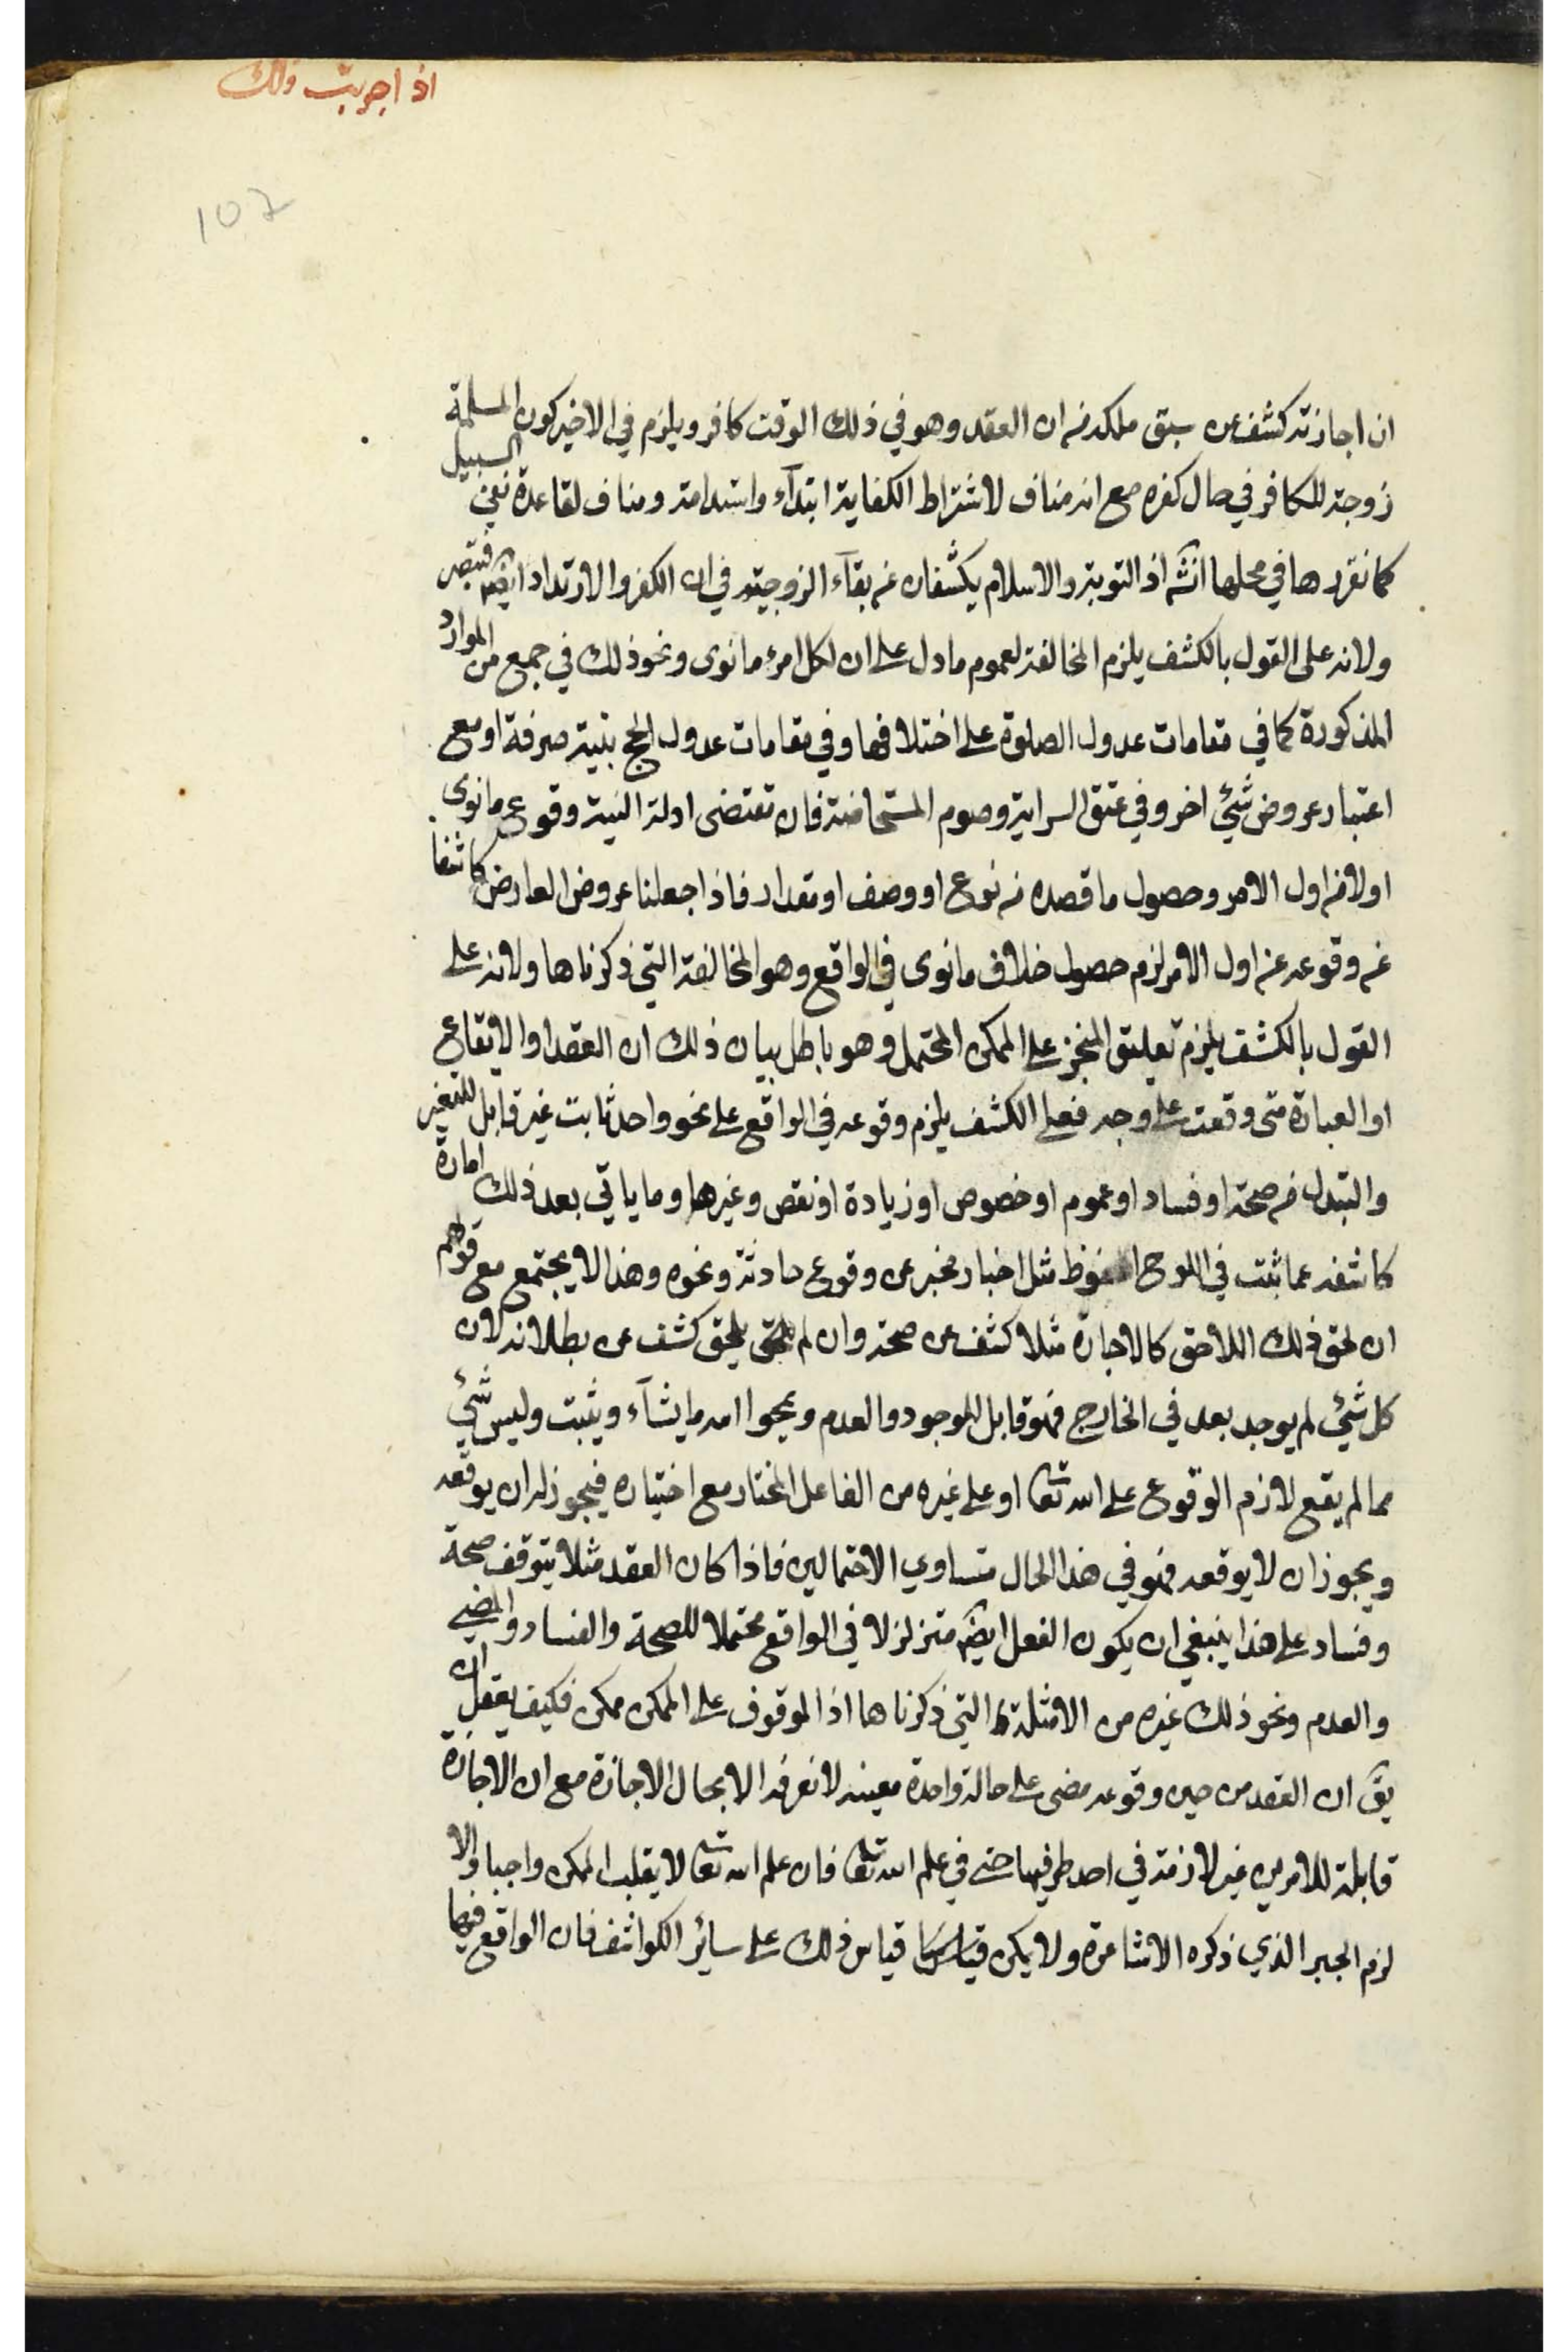 اذ اجريت ذلك
107
ان اجازته كشف عن سبق ملكه من ان العقد وهو في ذلك الوقت كافر ويلزم في الاخير كون المسلمة
زوجة للكافر في حال كفره مع انه مناف لاشتراط الكفاية ابتدآء واستدامة ومناف لقاعدة نفي السبيل
كما نقررها في محلها انشه اذ التوبة والاسلام يكشفان عن بقآء الزوجية في ان الكفر والارتداد ايضا فتبصر
ولانه على القول بالكشف يلزم المخالفة لعموم ما دل على ان لكل امرء ما نوى ونحو ذلك في جمع من الموارد
المذكورة كما في مقامات عدول الصلوة على اختلافها وفي مقامات عدول الحج بنية صرفة او مع
اعتبار عروض شئي اخر وفي عتق السراية وصوم المستحاضة فان تقتضى ادلة النية وقوع ما نوى
اولا من اول الامر وحصول ما قصده من نوع او وصف او مقدار فاذا جعلنا عروض العارض كاشفا
عن وقوعه عن اول الامر لزم حصول خلاف ما نوى في الواقع وهو المخالفة التي ذكرناها ولانه على
القول بالكشف يلزم تعليق المنجز على الممكن المحتمل وهو باطل بيان ذلك ان العقد او الايقاع
او العبادة متى وقعت على وجه فعلى الكشف يلزم وقوعه في الواقع على نحو واحد ثابت غير قابل للتغير
والتبدل من صحة او فساد او عموم او خصوص او زيادة او نقص وغيرها وما ياتي بعد ذلك امارة
كاشفة عما ثبت في اللوح المحفوظ مثل اخبار مخبر عن وقوع حادثة ونحوه وهذا لا يجتمع مع قولهم
ان لحق ذلك اللاحق كالاجازة مثلا كشف عن صحته وان لم يلحق كشف عن بطلانه لان
كل شئي لم يوجد بعد في الخارج فهو قابل للوجود والعدم ويمحوا الله ما يشآء ويثبت وليس شئي
مما لم يقع لازم الوقوع على الله تعا او على غيره من الفاعل المختار مع اختياره فيجوز له ان يوقعه
ويجوز ان لا يوقعه فهو في هذا الحال متساوي الاحتمالين فاذا كان العقد مثلا يتوقف صحة
وفساد على هذا ينبغي ان يكون الفعل ايضا متزلزلا في الواقع محتملا للصحة والفساد والمضي
والعدم ونحو ذلك غيره من الامثلة التي ذكرناها اذ الموقوف على الممكن ممكن فكيف يعقل ان
يق ان العقد من حين وقوعه مضى على حالة واحدة معينة لا نعرفه الا بحال الاجازة مع ان الاجازة
قابلة للامرين غير لازمة في احد طرفيها حتى في علم الله تعا فان علم الله تعا لا يقلب الممكن واجبا والا
لزم الجبر الذي ذكره الاشاعرة ولا يمكن قياس ذلك على سائر الكواشف فان الواقع فيها